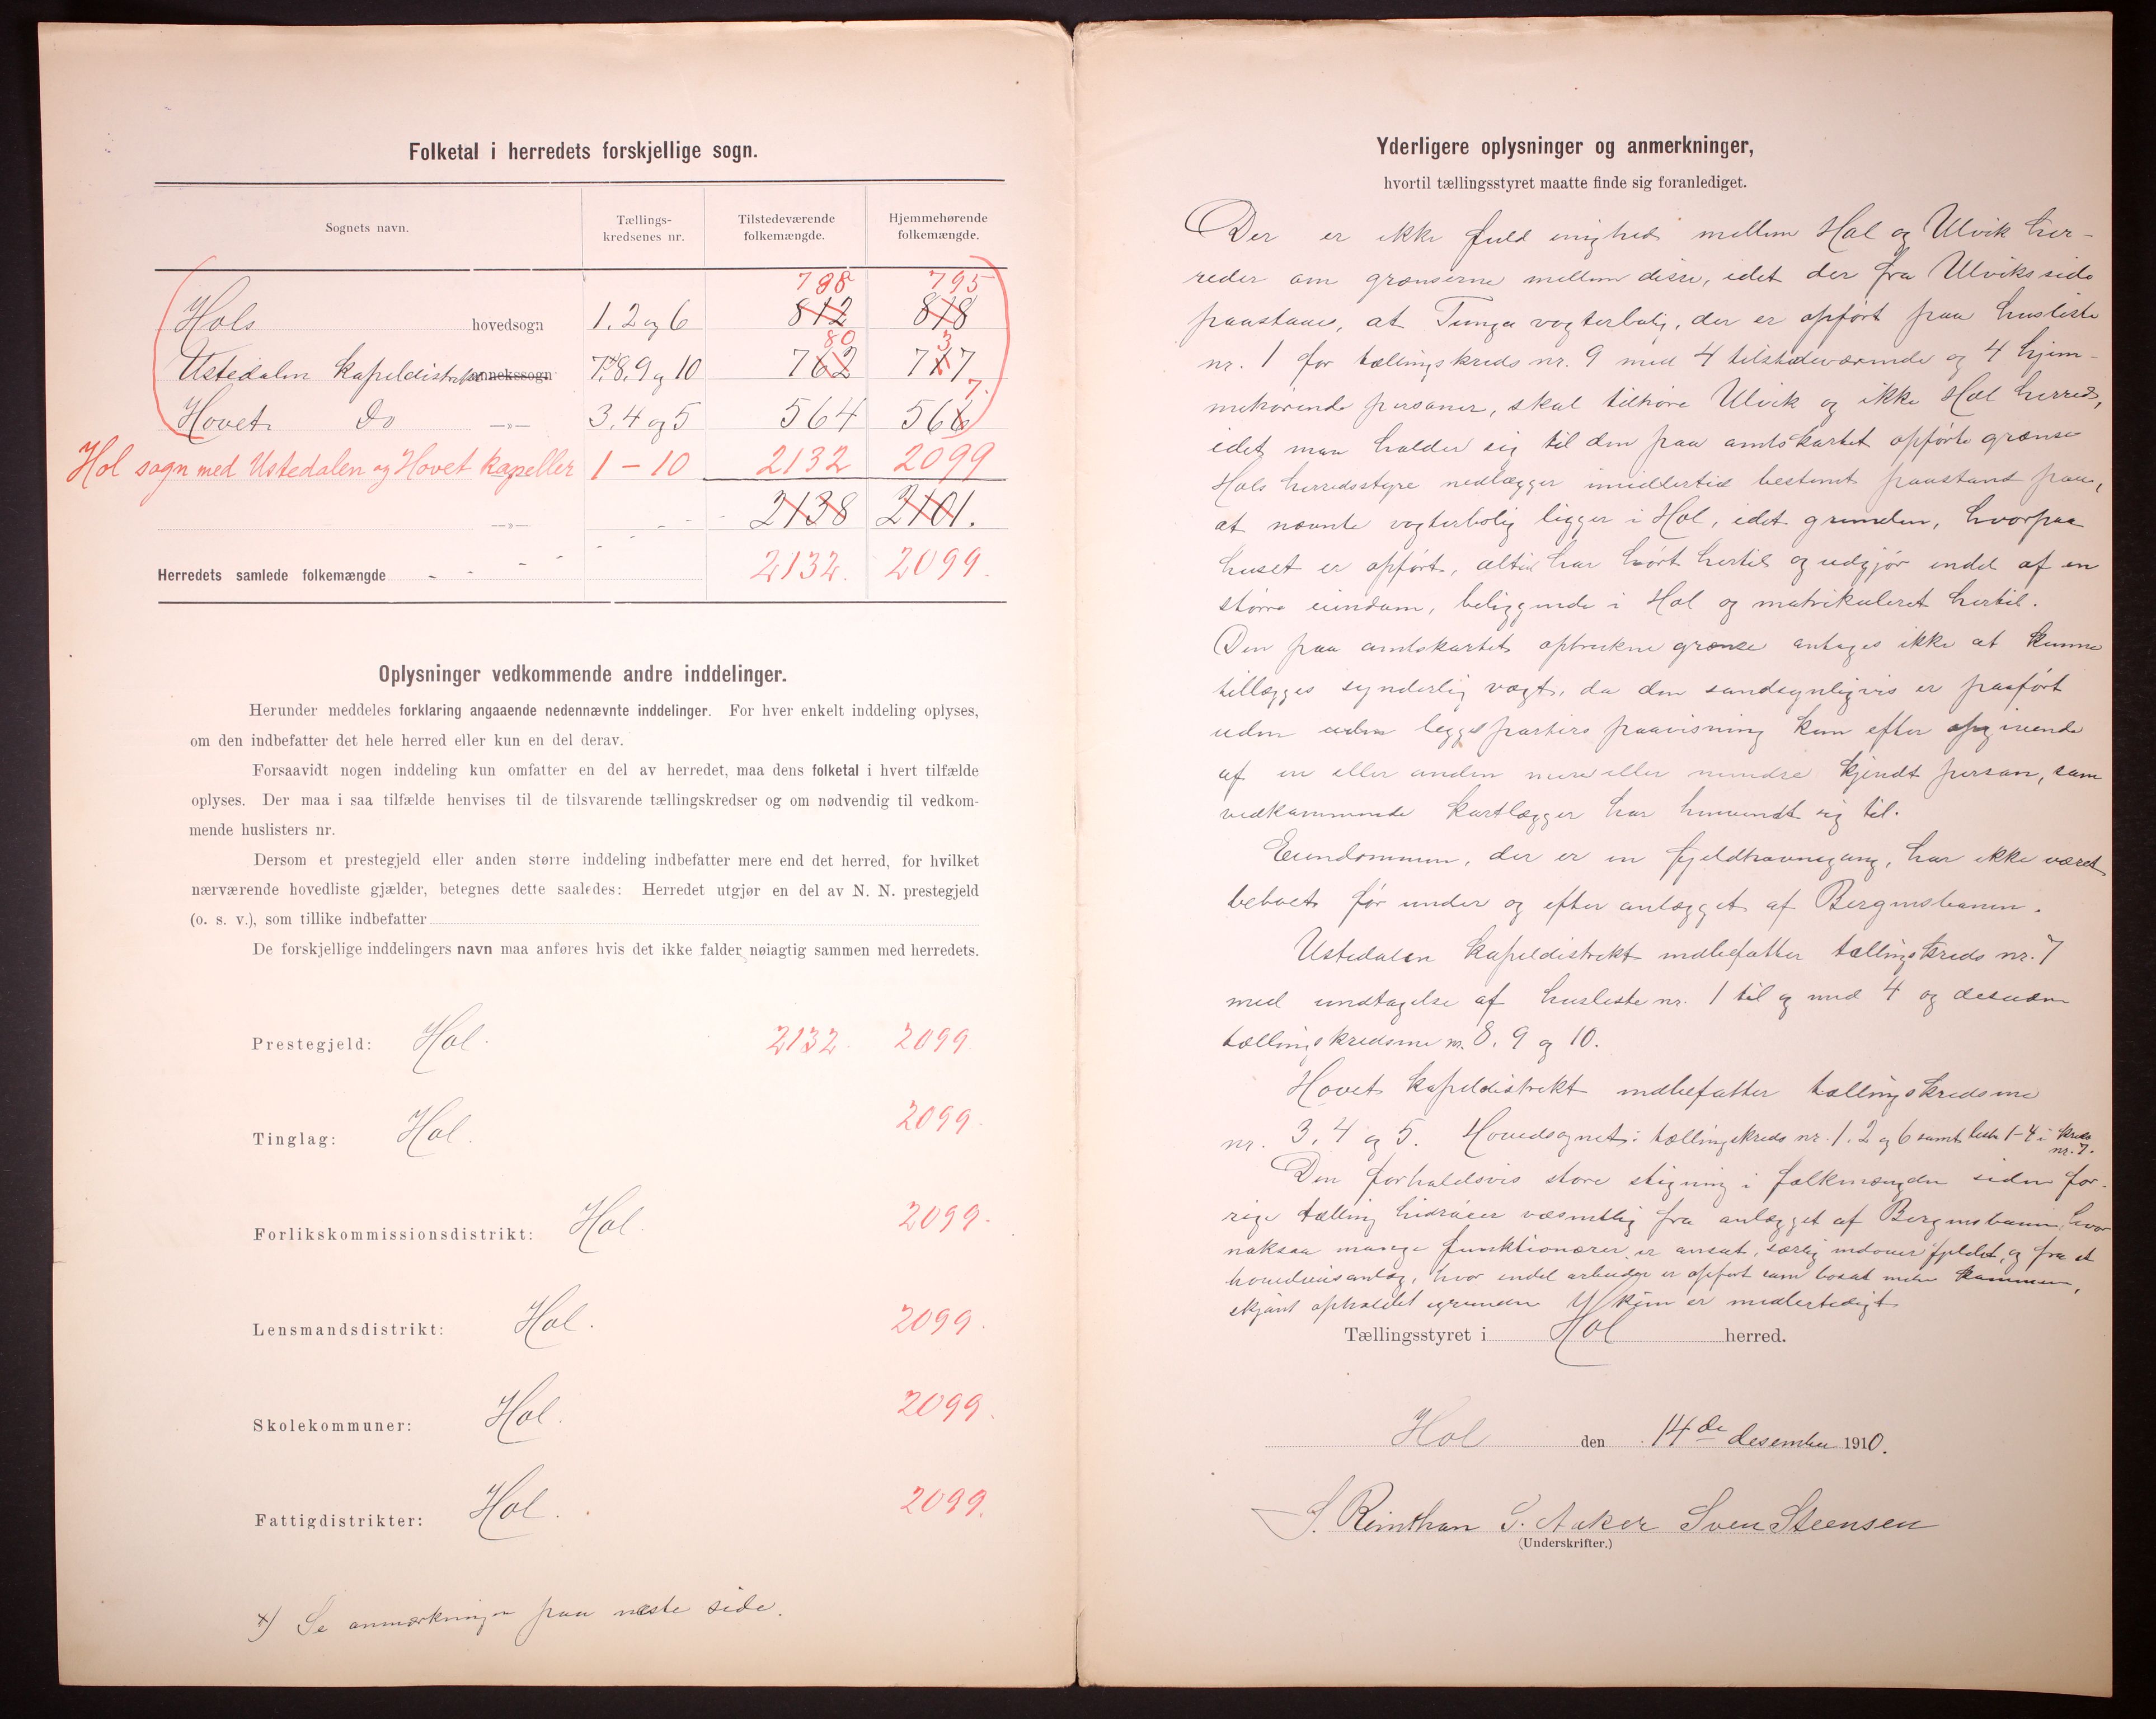 Folketal i herredets forskjellige sogn.
Sognets navn.
Tællings-
kredsenes nr.
Tilstedeværende
folkemængde.
Hjemmehørende
folkemængde.
798 795
Hols hovedsogn 1. 2 og 6 812 818
80 3
Ustedalen Kapeldistrikt annekssogn 7.x) 8. 9 og 10 762 717
7.
Hovet Do —»— 3. 4 og 5 564 566
Hol sogn med Ustedalen og Hovet kapeller 1 – 10 2132 2099
—»— 2138 2101.
Herredets samlede folkemængde 2132. 2099.
Oplysninger vedkommende andre inddelinger.
Herunder meddeles forklaring angaaende nedennævnte inddelinger. For hver enkelt inddeling oplyses,
om den indbefatter det hele herred eller kun en del derav.
Forsaavidt nogen inddeling kun omfatter en del av herredet, maa dens folketal i hvert tilfælde
oplyses. Der maa i saa tilfælde henvises til de tilsvarende tællingskredser og om nødvendig til vedkom-
mende huslisters nr.
Dersom et prestegjeld eller anden større inddeling indbefatter mere end det herred, for hvilket
nærværende hovedliste gjælder, betegnes dette saaledes: Herredet utgjør en del av N. N. prestegjeld
(o. s. v.), som tillike indbefatter
De forskjellige inddelingers navn maa anføres hvis det ikke falder nøiagtig sammen med herredets.
Prestegjeld: Hol. 2132. 2099.
Tinglag: Hol. 2099.
Forlikskommissionsdistrikt: Hol. 2099.
Lensmandsdistrikt: Hol. 2099.
Skolekommuner: Hol. 2099.
Fattigdistrikter: Hol. 2099.
x) Se anmærkningen paa næste side.
Yderligere oplysninger og anmerkninger,
hvortil tællingsstyret maatte finde sig foranlediget.
Der er ikke fuld enighed mellem Hol og Ulvik her-
reder om grænserne mellem disse, idet der fra Ulviks side
paastaaes, at Tunga vogterbolig, der er opført paa husliste
nr. 1 for tællingskreds nr. 9 med 4 tilstedeværende og 4 hjem-
mehørende personer, skal tilhøre Ulvik og ikke Hol herred,
idet man holder sig til den paa amtskartet opførte grænse
Hols herredsstyre nedlægger imidlertid bestemt paastand paa,
at nævnte vogterbolig ligger i Hol, idet grunden, hvorpaa
huset er opført, altid har hørt hertil og udgjør endel af en
større eiendom, beliggende i Hol og matrikuleret hertil.
Den paa amtskartet optrukne grænse antages ikke at kunne
tillægges synderlig vægt, da den sandsynligvis er paaført
uden begge partiers paavisning kun efter opgivende
af en eller anden mere eller mindre kjendt person, som
vedkommende kartlægger har henvendt sig til.
Eiendommen, der er en fjeldhavnegang, har ikke været
beboet før under og efter anlægget af Bergensbanen.
Ustedalen Kapeldistrikt indbefatter tællingskreds nr. 7
med undtagelse af husliste nr. 1 til og med 4 og desuden
tællingskredsene nr. 8, 9 og 10.
Hovet kapeldistrikt indbefatter tællingskredsene
nr. 3, 4 og 5. Hovedsognet: tællingskreds nr. 1, 2 og 6 samt liste 1-4 i kreds
nr. 7.
Den forholdsvis store stigning i folkemængden siden for-
rige tælling hidrører væsentlig fra anlægget af Bergensbanen, hvor
noksaa mange funktionærer er ansat, særlig indover fjeldet, og fra et
anlæg, hvor endel arbeider er opført som bosat
skjønt opholdet igrunden kun er midlertidigt
Tællingsstyret i Hol herred.
Hol den 14de desember 1910.
S. Reinthon S. Aaker Sven Steensen
(Underskrifter.)